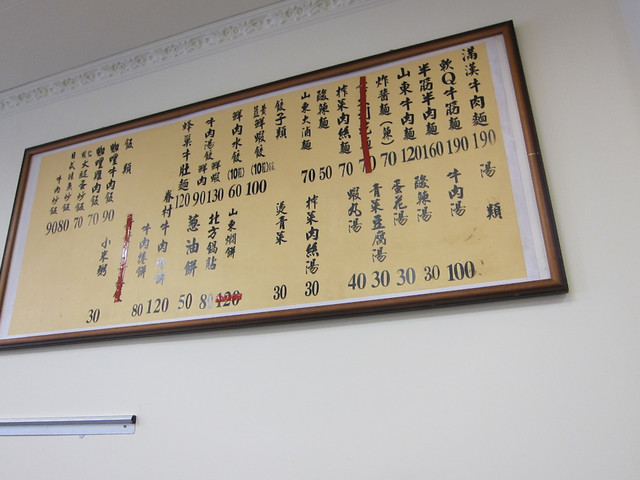 滿漢牛肉麵 190
軟Q牛筋麵 190
半筋半肉麵 160
山東牛肉麵 120
炸醬麵(辣) 70
榨菜肉絲麵 70
酸辣麵 50
山東大滷麵 70
餃子類
黃韭鮮蝦餃(10個) 100
鮮肉水餃(10個) 60
牛肉湯餃 鮮蝦 130 鮮肉 90
蜂巢牛肚麵 120
飯類
咖哩牛肉飯 90
咖哩雞肉飯 70
火腿蛋炒飯 70
牛肉炒飯 90
湯類
牛肉湯 100
酸辣湯 30
蛋花湯 30
青菜豆腐湯 30
蝦丸湯 40
榨菜肉絲湯 30
燙青菜 30
山東燜餅
北方鍋貼
蔥油餅 50
眷村牛肉 餅 120
牛肉捲餅 80
小米粥 30